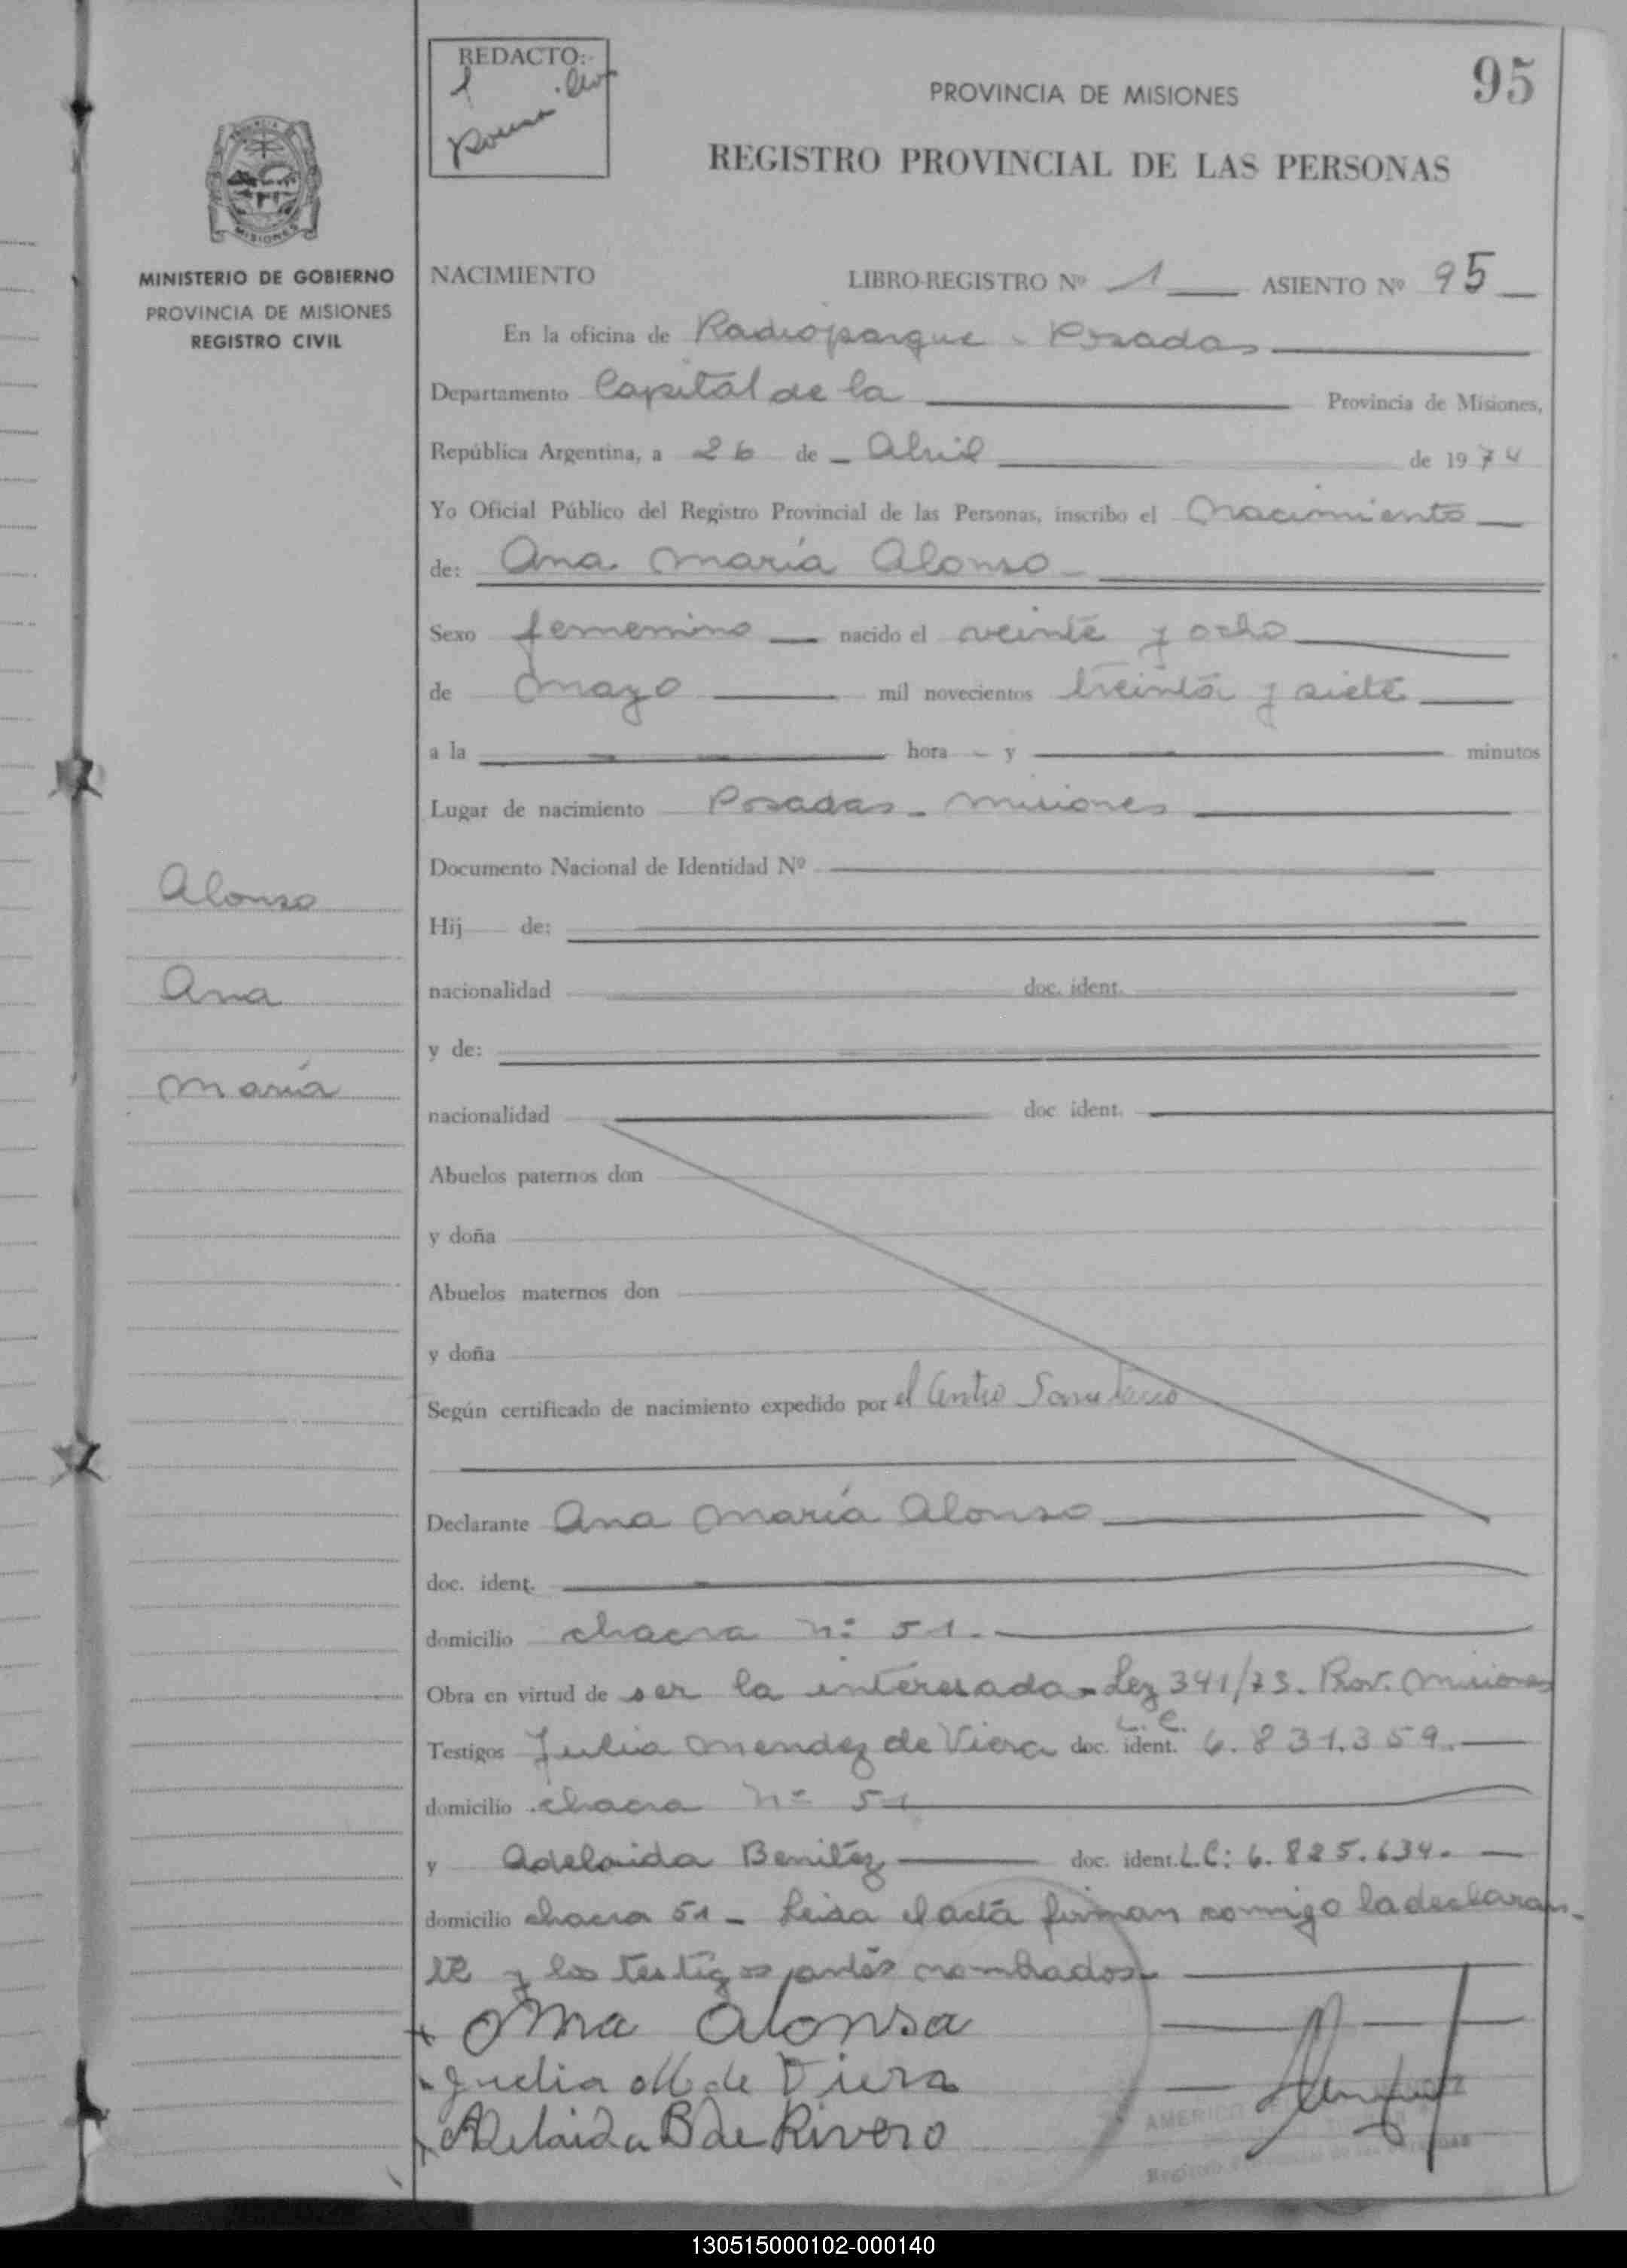 REDACTO:
95
PROVINCIA DE MISIONES
REGISTRO PROVINCIAL DE LAS PERSONAS
MISIONES
MINISTERIO DE GOBIERNO
PROVINCIA DE MISIONES
REGISTRO CIVIL
NACIMIENTO LIBRO-REGISTRO Nº 1 ASIENTO Nº 95
En la oficina de Radioparque - Posadas
Departamento Capital de la Provincia de Misiones,
República Argentina, a 26 de Abril de 1974
Yo Oficial Público del Registro Provincial de las Personas, inscribo el Nacimiento
de: Ana María Alonso
Sexo femenino nacido el veinte y ocho
de Mayo mil novecientos treinta y siete
a la hora y minutos
Lugar de nacimiento Posadas - Misiones
Documento Nacional de Identidad Nº
Alonso
Hij de:
Ana
nacionalidad doc. ident.
y de:
María
nacionalidad doc ident.
Abuelos paternos don
y doña
Abuelos maternos don
y doña
Según certificado de nacimiento expedido por el Centro
Declarante Ana María Alonso
doc. ident.
domicilio chacra nº 51.
Obra en virtud de ser la interesada - Ley 341/73. Prov. Misiones
Testigos Julia Mendez de Viera doc. ident. L.C. 6.831.359.
domicilio chacra nº 51
y Adelaida Benitez doc. ident. L.C: 6.825.634.
domicilio chacra 51 - Leida el acta firman comigo la declaran-
te y los testigos antes nombrados
Ana Alonsa
Julia M de Viera
Adelaida B de Rivero
AMERICO
130515000102-000140